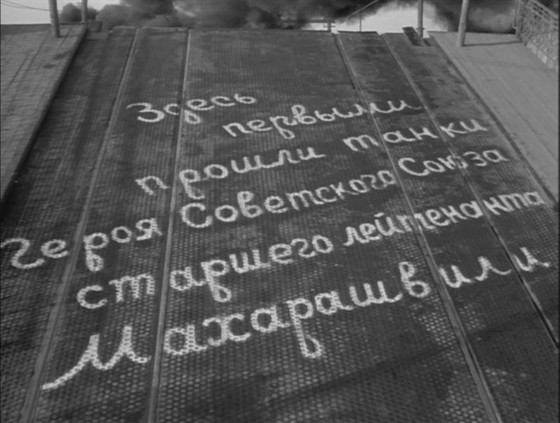 Здесь
первыми
прошли танки
героя Советского Союза
старшего лейтенанта
Махарашвили